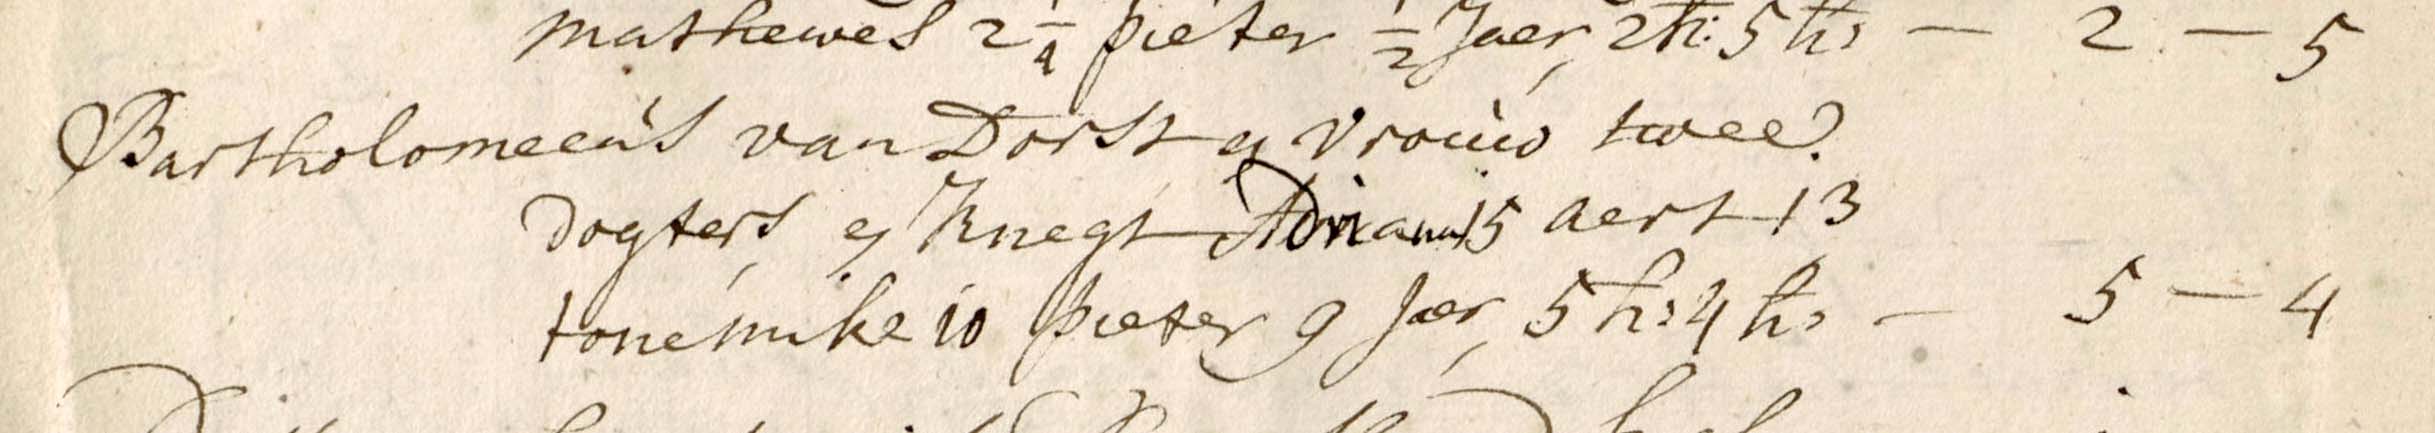 mathewes 2 1/4 pieter 1/2 Jaer, 2 h: 5 h: — 2 — 5
Bartholomeeus van Dorst ej vrouw twee
Dogters, ej Knegt Adriaan 15 aert 13
tonemike 10 pieter 9 Jaer, 5 h: 4 h: — 5 — 4